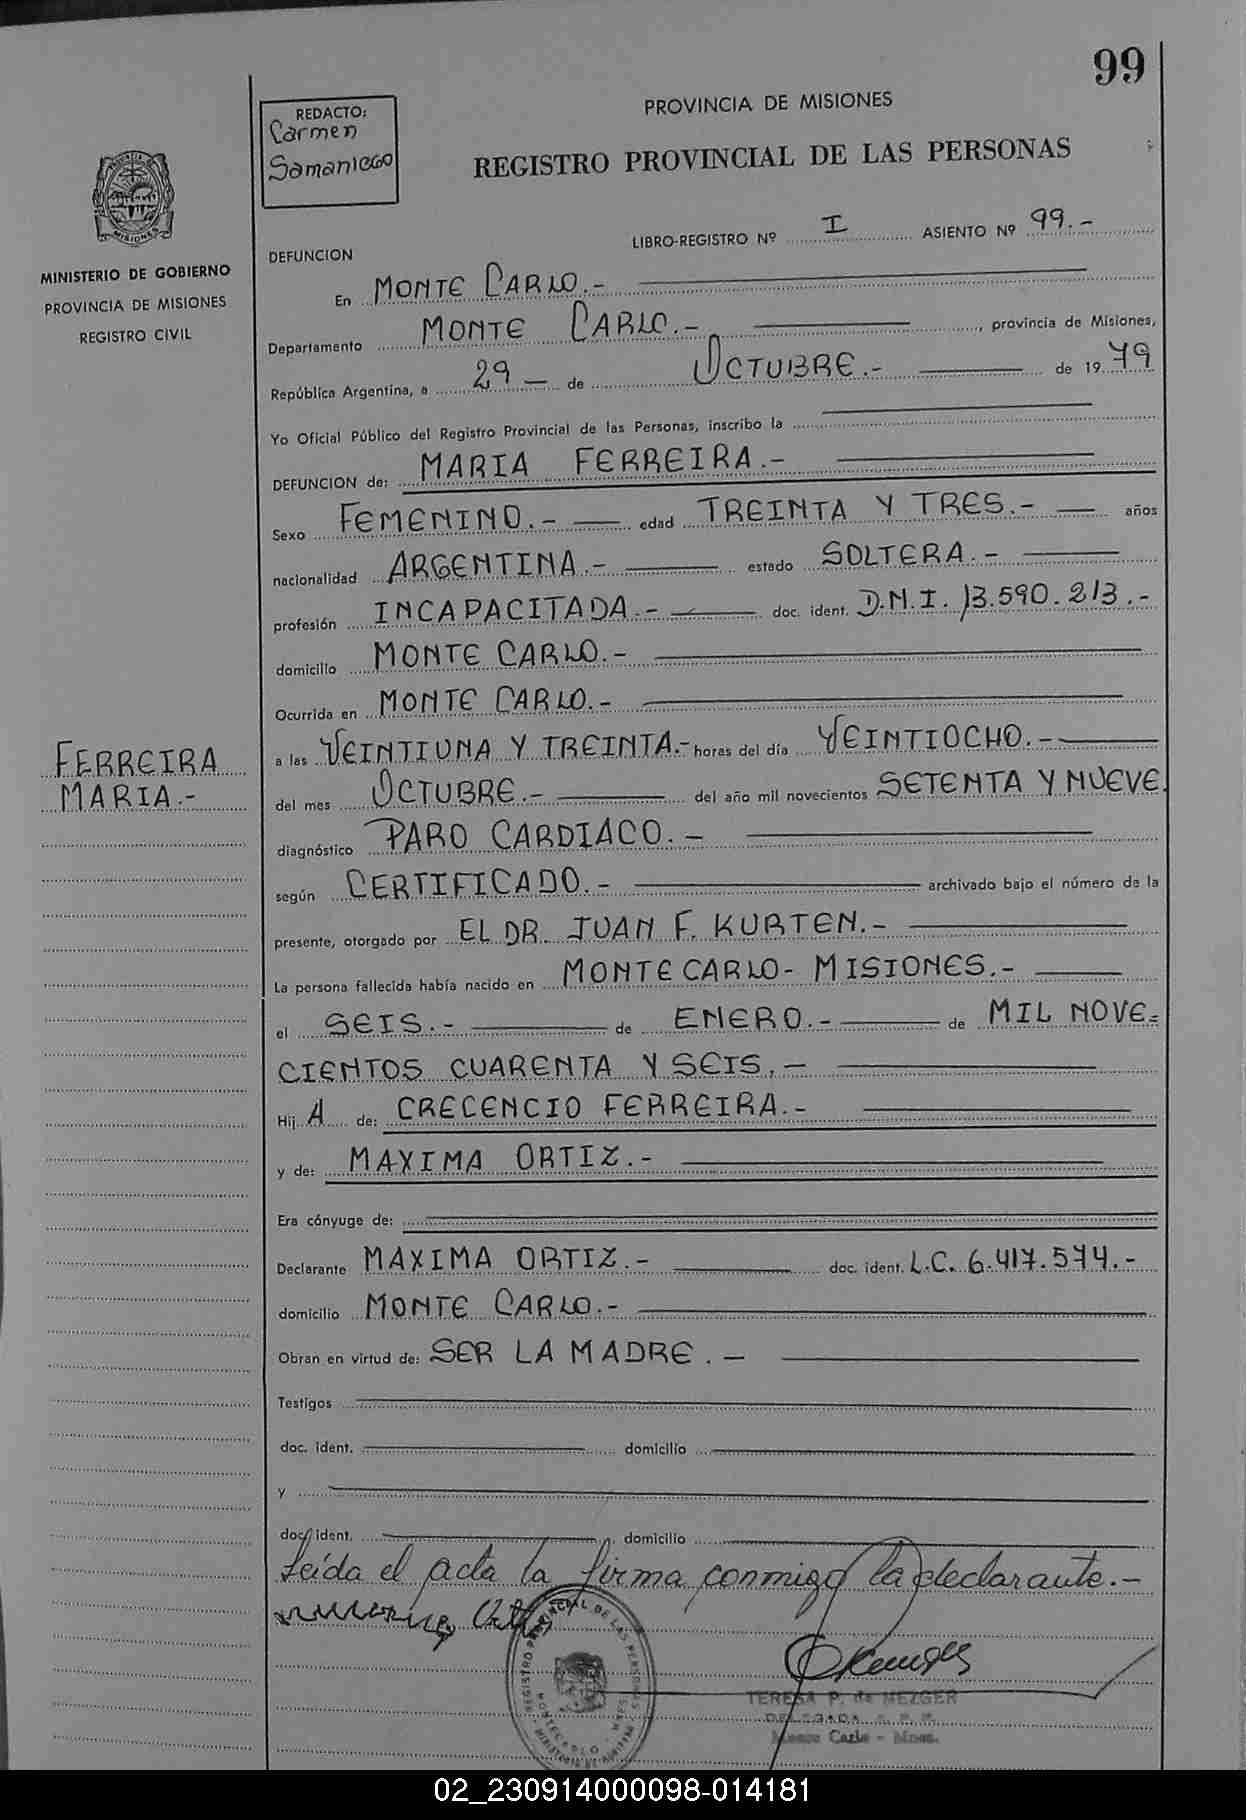 99
REDACTO:
Carmen
Samaniego
PROVINCIA DE MISIONES
REGISTRO PROVINCIAL DE LAS PERSONAS
MISIONES
MINISTERIO DE GOBIERNO
PROVINCIA DE MISIONES
REGISTRO CIVIL
LIBRO-REGISTRO Nº I ASIENTO Nº 99.-
DEFUNCION
En MONTE CARLO.-
Departamento MONTE CARLO.- , provincia de Misiones,
República Argentina, a 29 — de OCTUBRE.- de 1979
Yo Oficial Público del Registro Provincial de las Personas, inscribo la
DEFUNCION de: MARIA FERREIRA.-
Sexo FEMENINO.- edad TREINTA Y TRES.- años
nacionalidad ARGENTINA.- estado SOLTERA.-
profesión INCAPACITADA.- doc. ident. D.N.I. 13.590.213.-
domicilio MONTE CARLO.-
Ocurrida en MONTE CARLO.-
FERREIRA
MARIA.-
a las VEINTIUNA Y TREINTA.- horas del día VEINTIOCHO.-
del mes OCTUBRE.- del año mil novecientos SETENTA Y NUEVE
diagnóstico PARO CARDIACO.-
según CERTIFICADO.- archivado bajo el número de la
presente, otorgado por EL DR. JUAN F. KURTEN.-
La persona fallecida había nacido en MONTECARLO- MISIONES.-
el SEIS.- de ENERO.- de MIL NOVE=
CIENTOS CUARENTA Y SEIS.-
Hij A de: CRECENCIO FERREIRA.-
y de: MAXIMA ORTIZ.-
Era cónyuge de:
Declarante MAXIMA ORTIZ.- doc. ident. L.C. 6.417.574.-
domicilio MONTE CARLO.-
Obran en virtud de: SER LA MADRE.-
Testigos
doc. ident. domicilio
y
doc. ident. domicilio
Leída el acta la firma conmigo la declarante.-
REGISTRO PROVINCIAL DE LAS PERSONAS
MONTECARLO - MNES
TERESA P. de MEZGER
DELEGADA R. P. P.
Monte Carlo - Mnes.
02_230914000098-014181